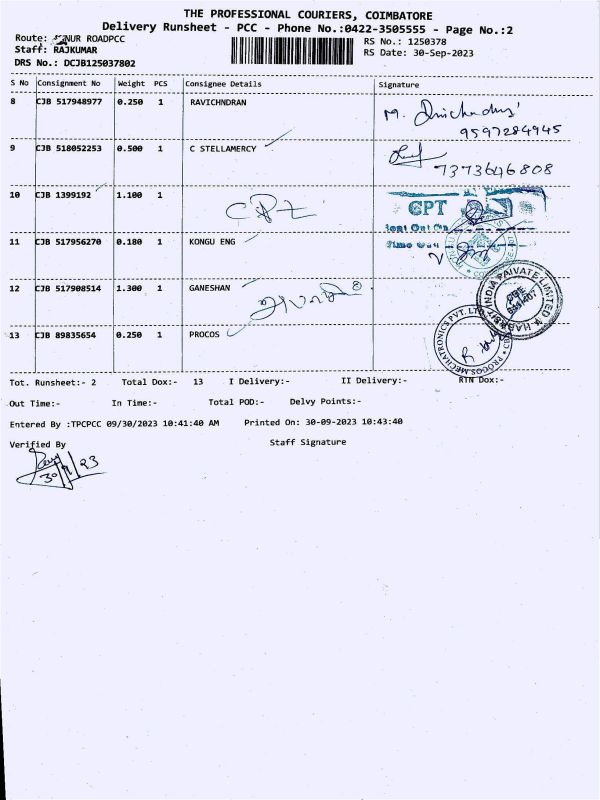 THE PROFESSIONAL COURIERS, COIMBATORE
Delivery Runsheet - PCC - Phone No.:0422-3505555 - Page No.:2
Route: NUR ROADPCC
RS No.: 1250378
Staff: RAJKUMAR
RS Date: 30-Sep-2023
DRS No.: DCJB125037802
S No Consignment No Weight PCS Consignee Details Signature
8 CJB 517948977 0.250 1 RAVICHNDRAN
9597284945
9 CJB 518052253 0.500 1 C STELLAMERCY
7373646808
10 CJB 1399192 1.100 1
CPT
11 CJB 517956270 0.180 1 KONGU ENG
12 CJB 517908514 1.300 1 GANESHAN
INDIA PRIVATE LIMITED
13 CJB 89835654 0.250 1 PROCOS
PROCOS MECHATRONICS PVT. LTD.
Tot. Runsheet:- 2 Total Dox:- 13 I Delivery:- II Delivery:- RTN Dox:-
Out Time:- In Time:- Total POD:- Delvy Points:-
Entered By :TPCPCC 09/30/2023 10:41:40 AM Printed On: 30-09-2023 10:43:40
Verified By Staff Signature
30/9/23